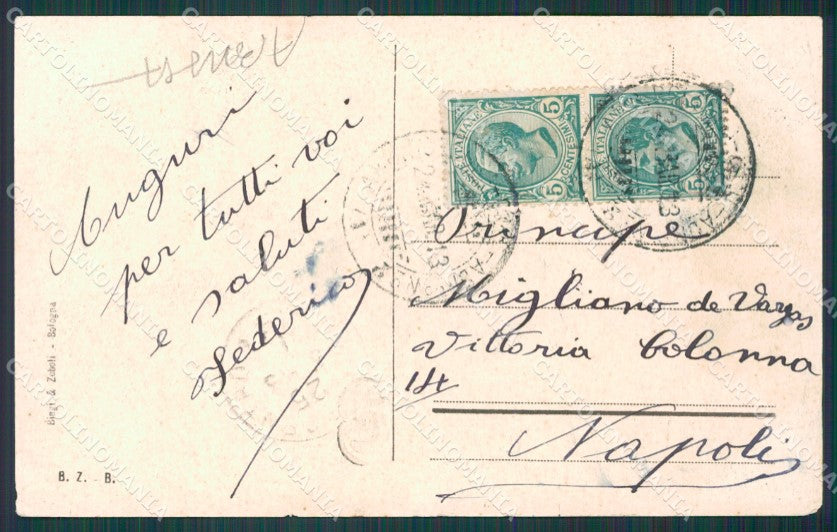 Auguri
per tutti voi
e saluti
Federico
Biagi & Zoboli - Bologna
B. Z. - B.
POSTE ITALIANE
CENTESIMI
5 5
POSTE ITALIANE
CENTESIMI
5 5
Principe
Migliano de Vargas
Vittoria Colonna
14
Napoli
CARTOLINOMANIA